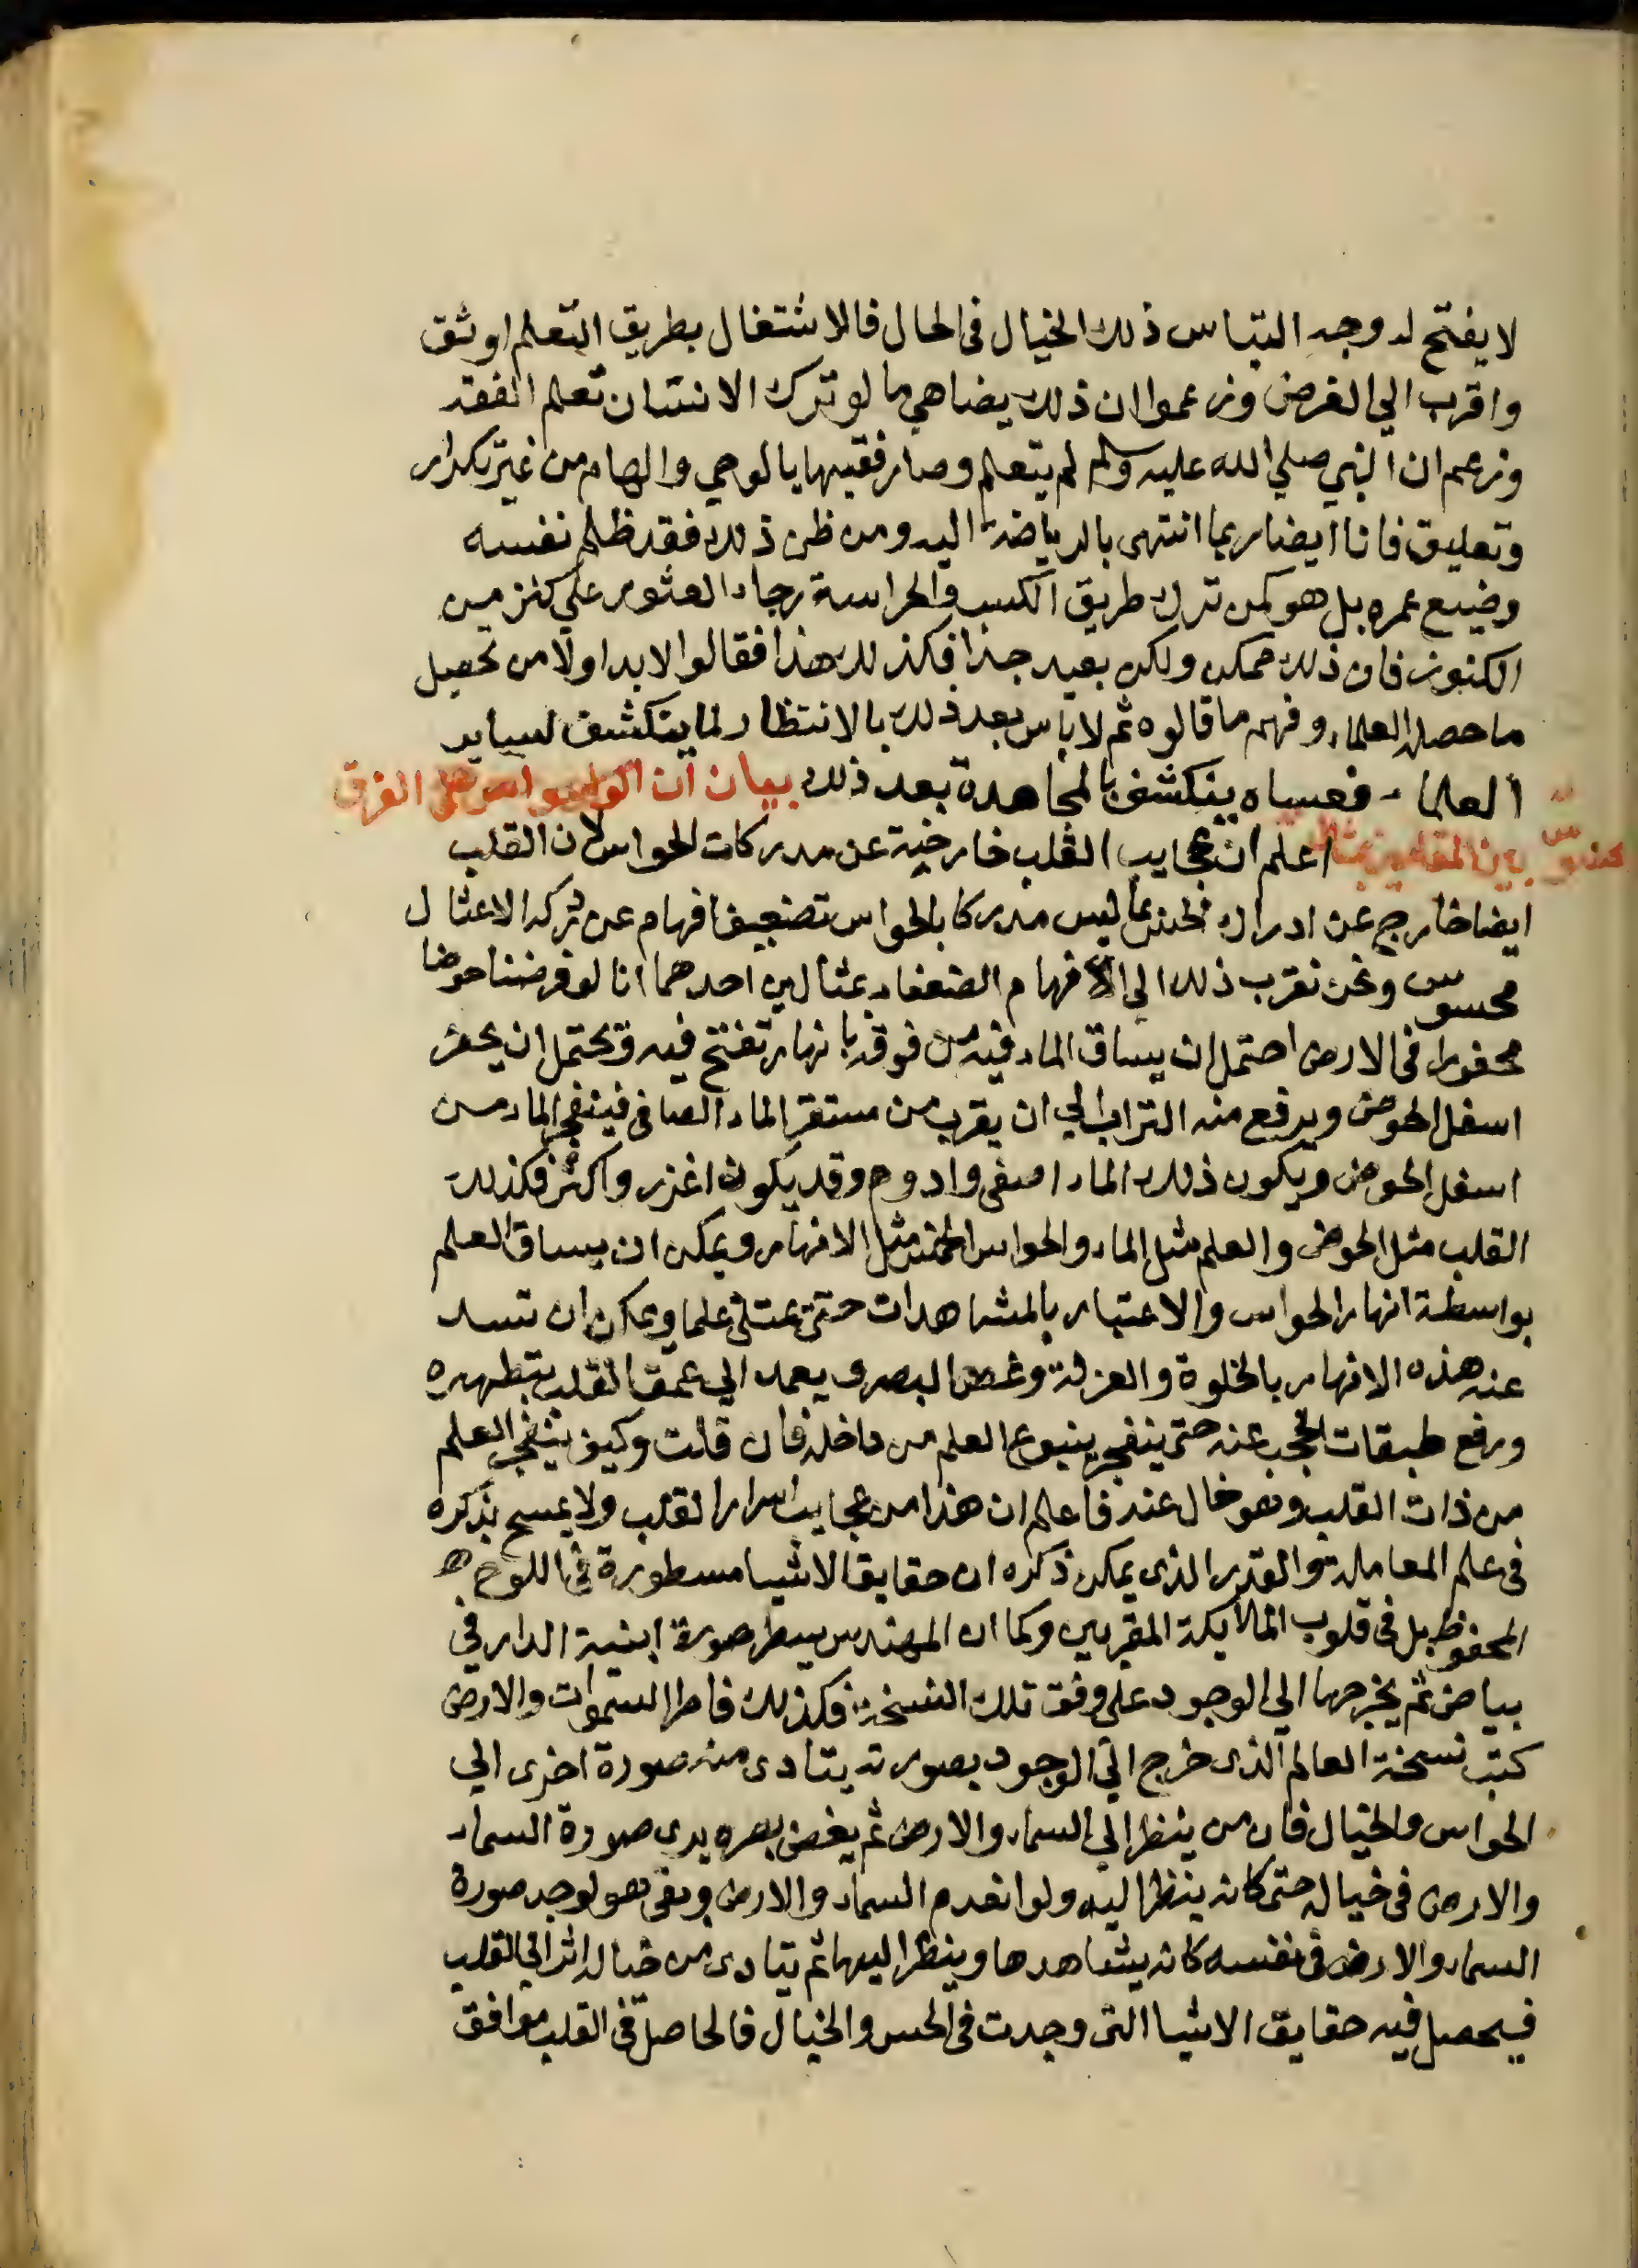 لا يفتح له وجه التباس ذلك الخيال فى الحال فالاشتغال بطريق التعلم اوثق
واقرب الي الغرض وزعموا ان ذلك يضاهي ما لو ترك الانسان تعلم الفقه
وزعم ان النبي صلي الله عليه وسلم لم يتعلم وصار فقيها بالوحي والهام من غير تكرار
وتعليق فانا ايضا ربما انتهى بالرياضة اليه ومن ظن ذلك فقد ظلم نفسه
وضيع عمره بل هو كمن ترك طريق الكسب والحراسة رجاء العثور علي كنز من
الكنوز فان ذلك ممكن ولكن بعيد جدا فكذلك هذا فقالوا لابد اولا من تحصيل
ما حصله العلماء وفهم ما قالوه ثم لا باس بعد ذلك بالانتظار لما ينكشف لساير
العلماء فعساه ينكشف بالمجاهدة بعد ذلك بيان ان الفرق
بين اعلم ان عجايب القلب خارجة عن مدركات الحواس لان القلب
ايضا خارج عن ادراك الحس ليس مدركا بالحواس تضعيف افهام عن تركه الا عثال
محسوس ونحن نقرب ذلك الي الافهام الضعفاء بمثالين احدهما انا لو فرضنا حوضا
محفورا فى الارض احتمل ان يساق الماء فيه من فوقه بانهار تفتح فيه ويحتمل ان يحفر
اسفل الحوض ويرفع منه التراب الي ان يقرب من مستقر الماء الصافى فينفجر الماء من
اسفل الحوض ويكون ذلك الماء اصفى وادوم وقد يكون اغزر واكثر فكذلك
القلب مثل الحوض والعلم مثل الماء والحواس الخمس مثل الانهار ويمكن ان يساق العلم
بواسطة انهار الحواس والاعتبار بالمشاهدات حتى يمتلئ علما ويمكن ان تسد
عنه هذه الانهار بالخلوة والعزلة وغض البصر ويعمد الي عمق القلب بتطهيره
ورفع طبقات الحجب عنه حتى ينفجر ينبوع العلم من داخله فان قلت وكيف ينفجر العلم
من ذات القلب وهو خال عنه فاعلم ان هذا من عجايب اسرار القلب ولا يسمح بذكره
فى علم المعاملة والقدر الذى يمكن ذكره ان حقايق الاشيا مسطورة فى اللوح
المحفوظ بل فى قلوب الملايكة المقربين وكما ان المهندس يسطر صورة ابنية الدار في
بياض ثم يخرجها الي الوجود علي وفق تلك النسخة فكذلك فاطر السموات والارض
كتب نسخة العالم الذى خرج الي الوجود بصورته يتادى منه صورة اخرى الي
الحواس والخيال فان من ينظر الي السماء والارض ثم يغض بصره يرى صورة السماء
والارض فى خياله حتى كانه ينظر اليه ولو انعدم السماء والارض وبقى هو لوجد صورة
السماء والارض فى نفسه كانه يشاهدها وينظر اليها ثم يتادى من خياله اثر الى القلب
فيحصل فيه حقايق الاشيا التى وجدت فى الحس والخيال فالحاصل فى القلب موافق